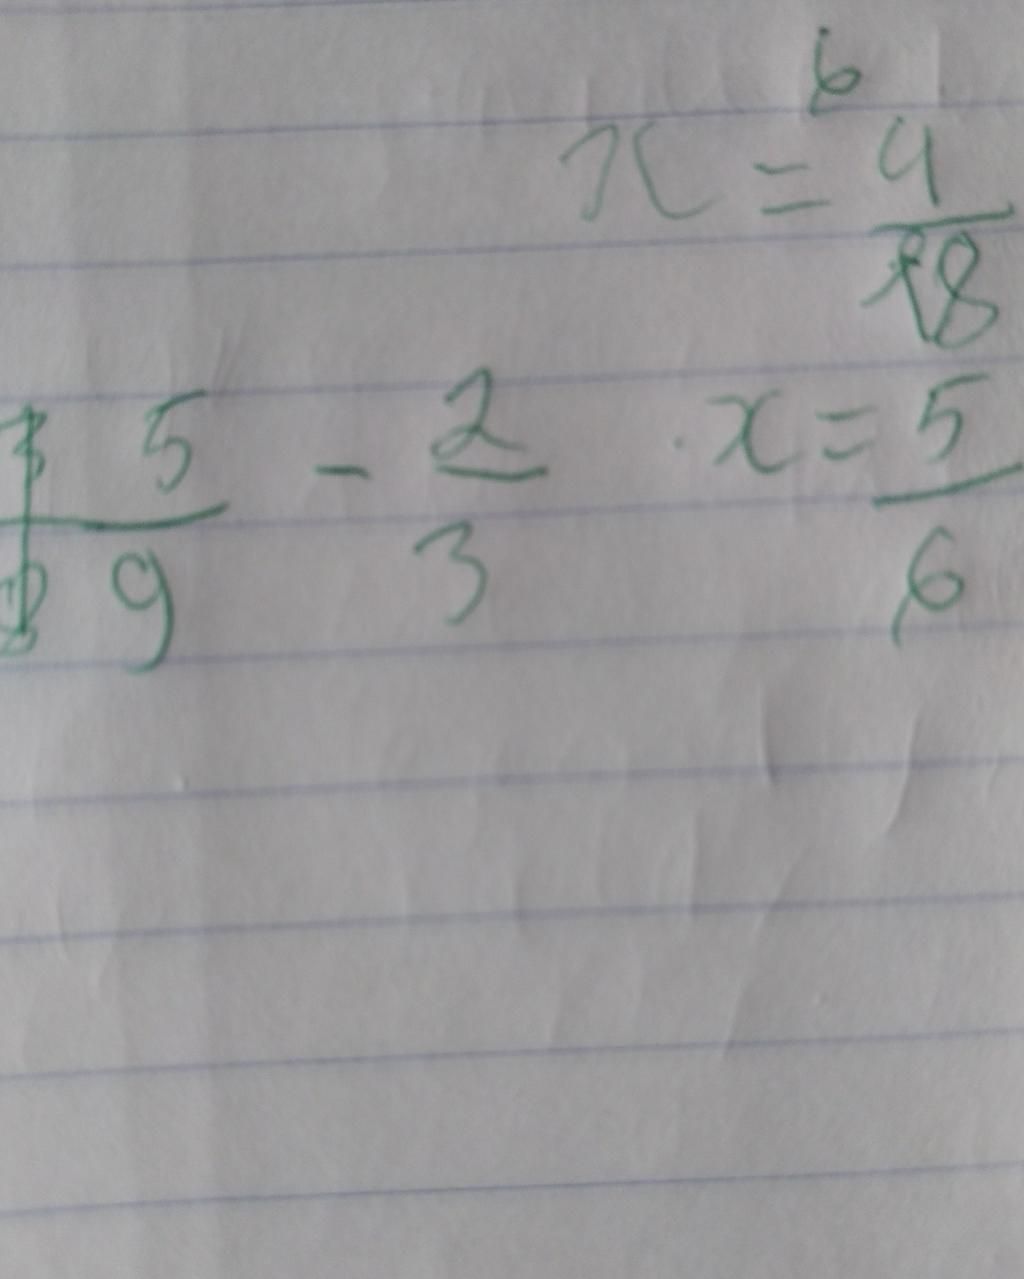 6
x = 4/18
5/9 - 2/3 . x = 5/6